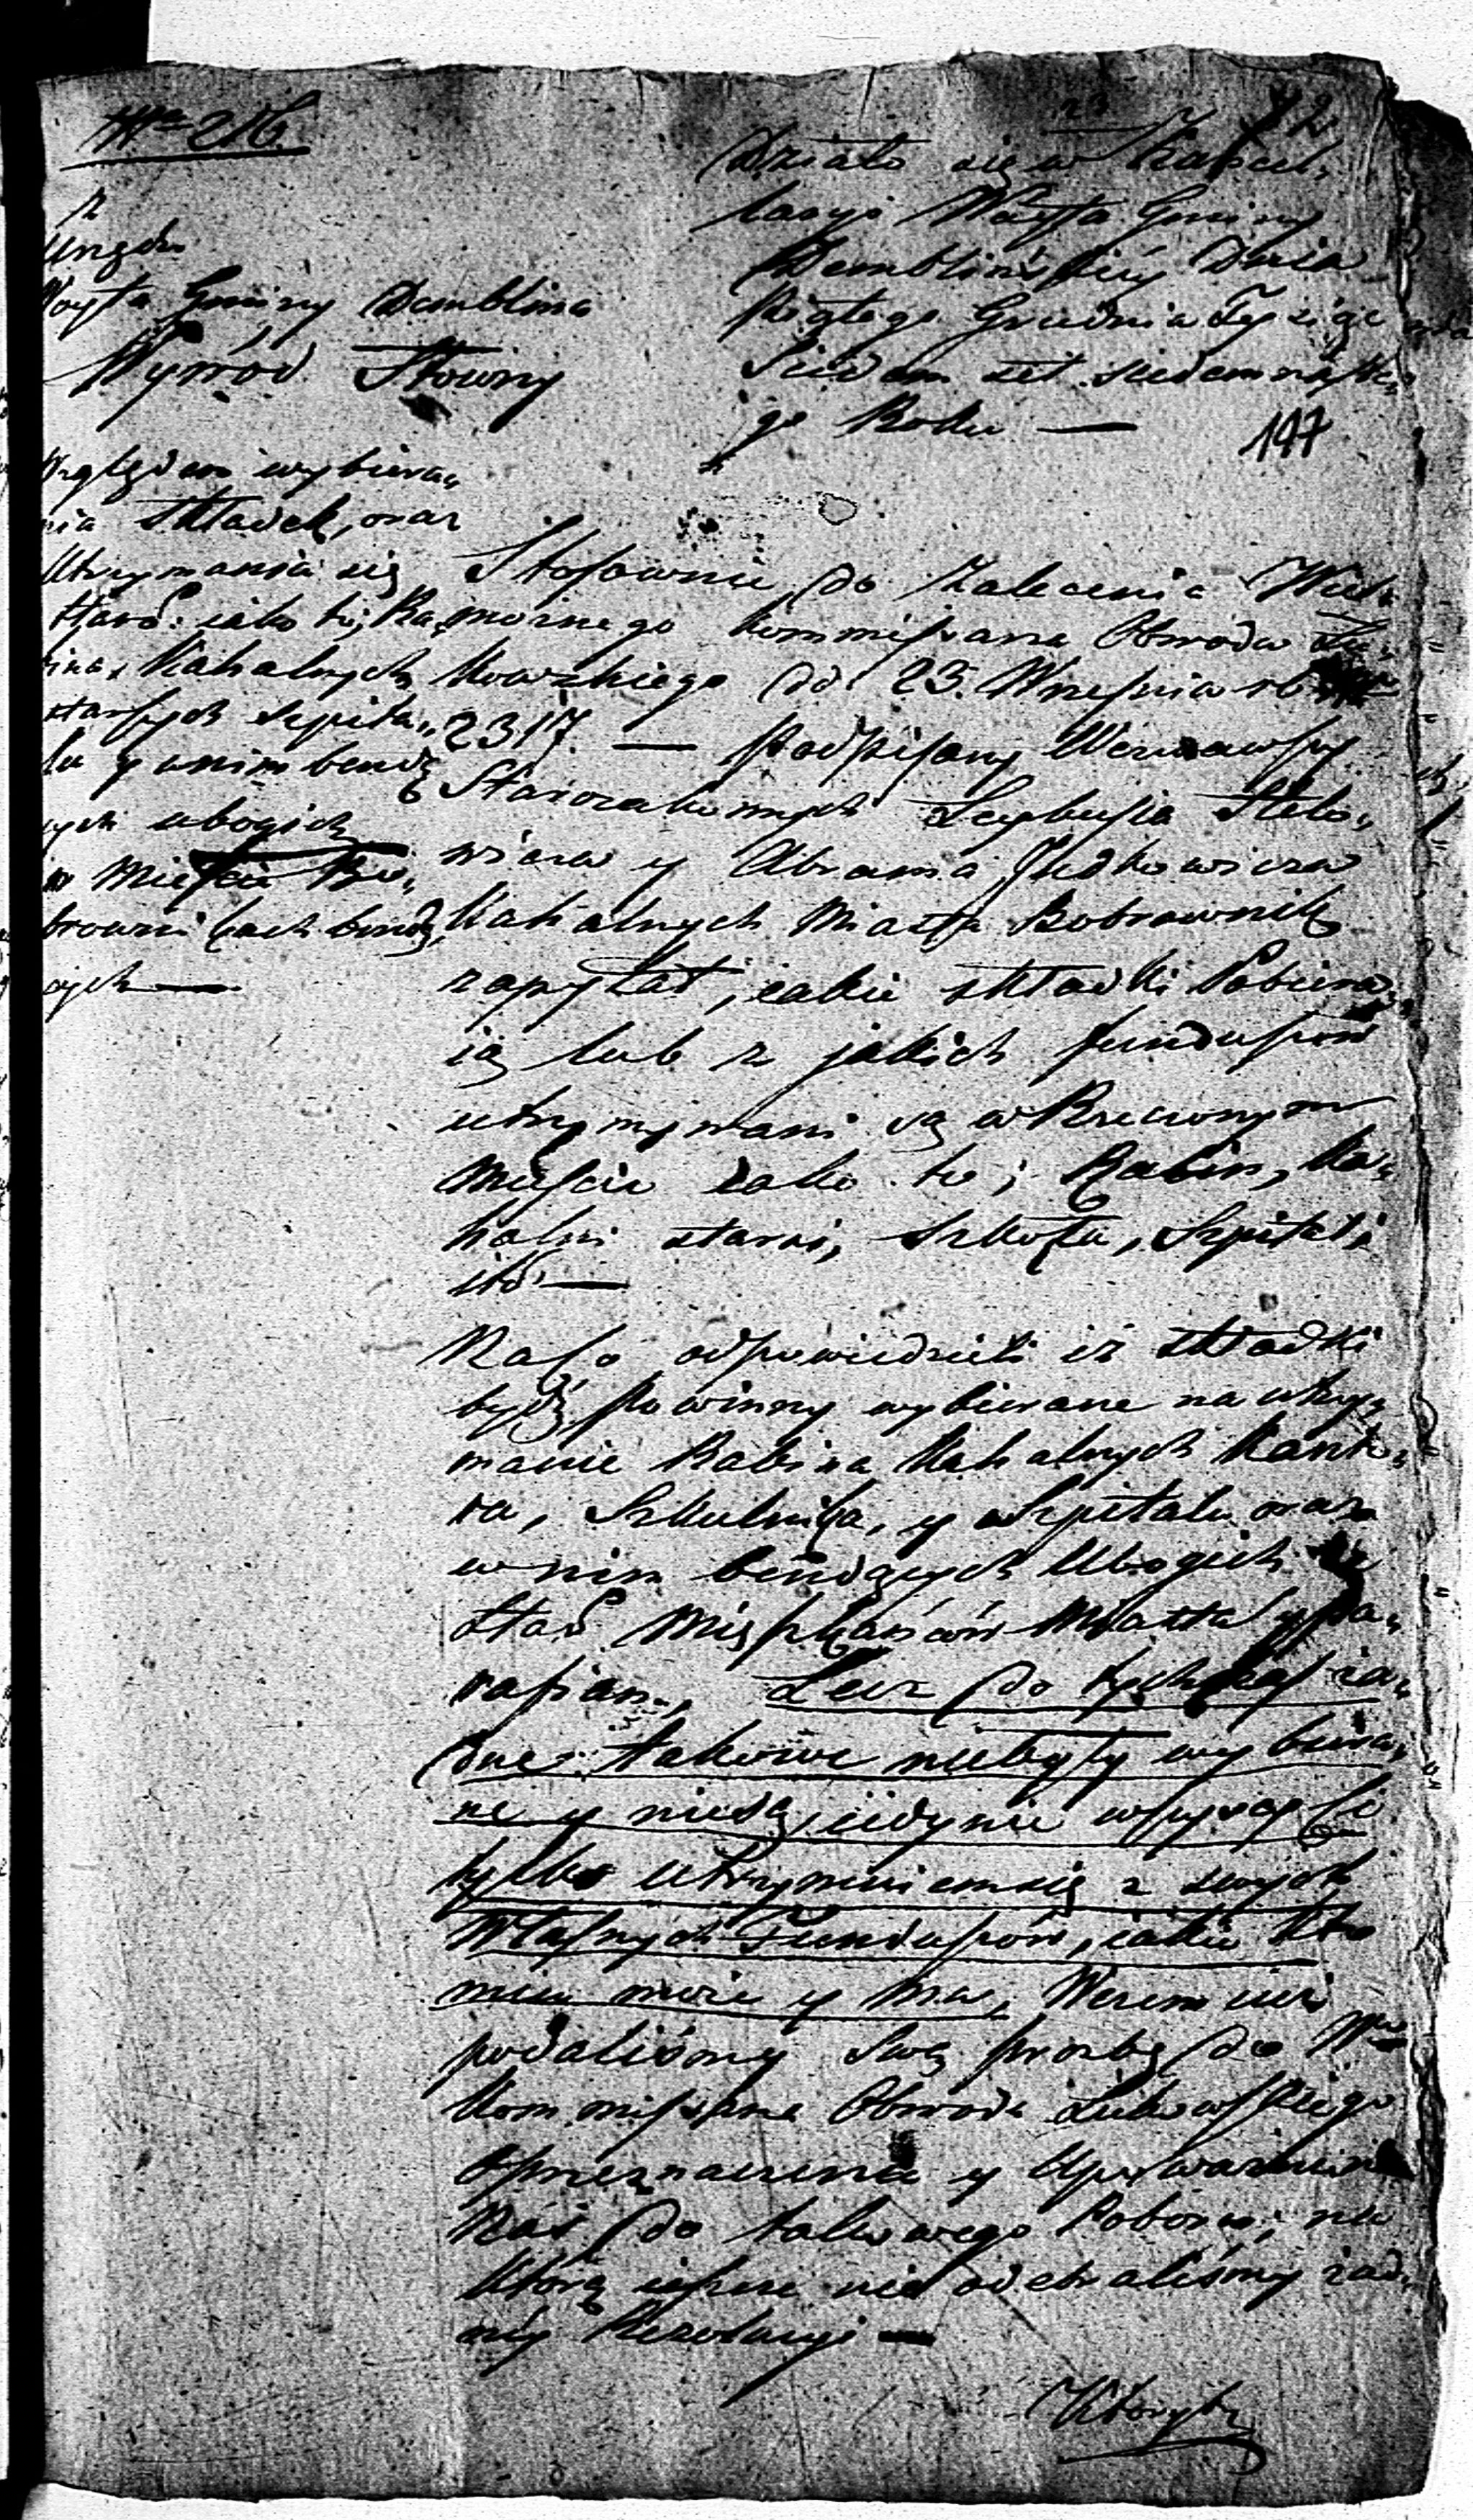 Nro 216.
z
Urzędu
Woyta Gminy Demblina
Wywód Słowny
Względem wybiera„
nia składek, oraz
Utrzymania się
staroz: iako to; Ra„
bina, Kahalnych
starszych szpita„
la y wnim będą
cych ubogich
w Mieście Bo„
brownikach będą„
cych —
23
72
Działo się w Kancel„
laryi Woyta Gminy
Demblińskiey Dnia
Piątego Grudnia Tysiąc
Siedem set siedemnaste„
go Roku —
147
Stosownie do zalecenia Wiel„
możnego Kommissarza Obwodu Łu„
kowskiego dd 23. Września rb
2317. — Podpisany Wezwawszy
Starozakonnych Leybusia
y Abrama Judkowicza
Kahalnych Miasta Bobrownik
zapytał, iakie składki Pobiera„
ią lub z jakich funduszów
utrzymywani są w Rzeczonym
Mieście iako to; Rabin, Ka„
halni starsi, Szkoła, Szpital i
itd —
Na co odpowiedzieli iż składki
bydź powinny wybierane na utrzy„
manie Rabina Kahalnych Kanto„
ra, Szkulnika, y Szpitalu oraz
w nim będących Ubogich
Staroz Mieszkańców Miasta y pa„
rafian, Lecz do tych czas ża„
dne takowe niebyły wybiera„
ne y niesą, iedynie wszyscy
tylko utrzymuiem się z swych
Własnych Funduszów, iakie kto
mieć może y ma, Wczem iuż
podaliśmy swą prozbę do Wo
Kommissarza Obwodu Łukowskiego
o przeznaczenie y Upoważnienie
Nas do takowego Poboru; na
którą ieszcze nie odebraliśmy żad„
ney Rezolucyi —
Których